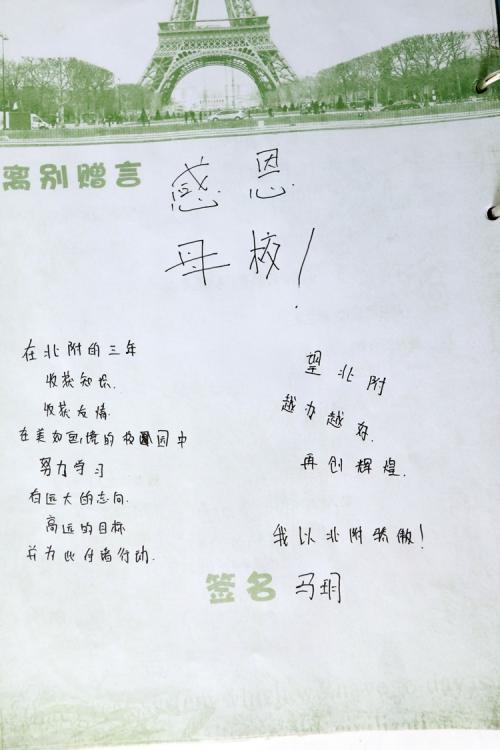 离别赠言
感恩
母校!
在北附的三年
收获知识.
收获友情.
在美如画境的校园中
努力学习
有远大的志向.
高远的目标
并为此付诸行动.
望北附
越办越好.
再创辉煌.
我以北附骄傲!
签名 马玥